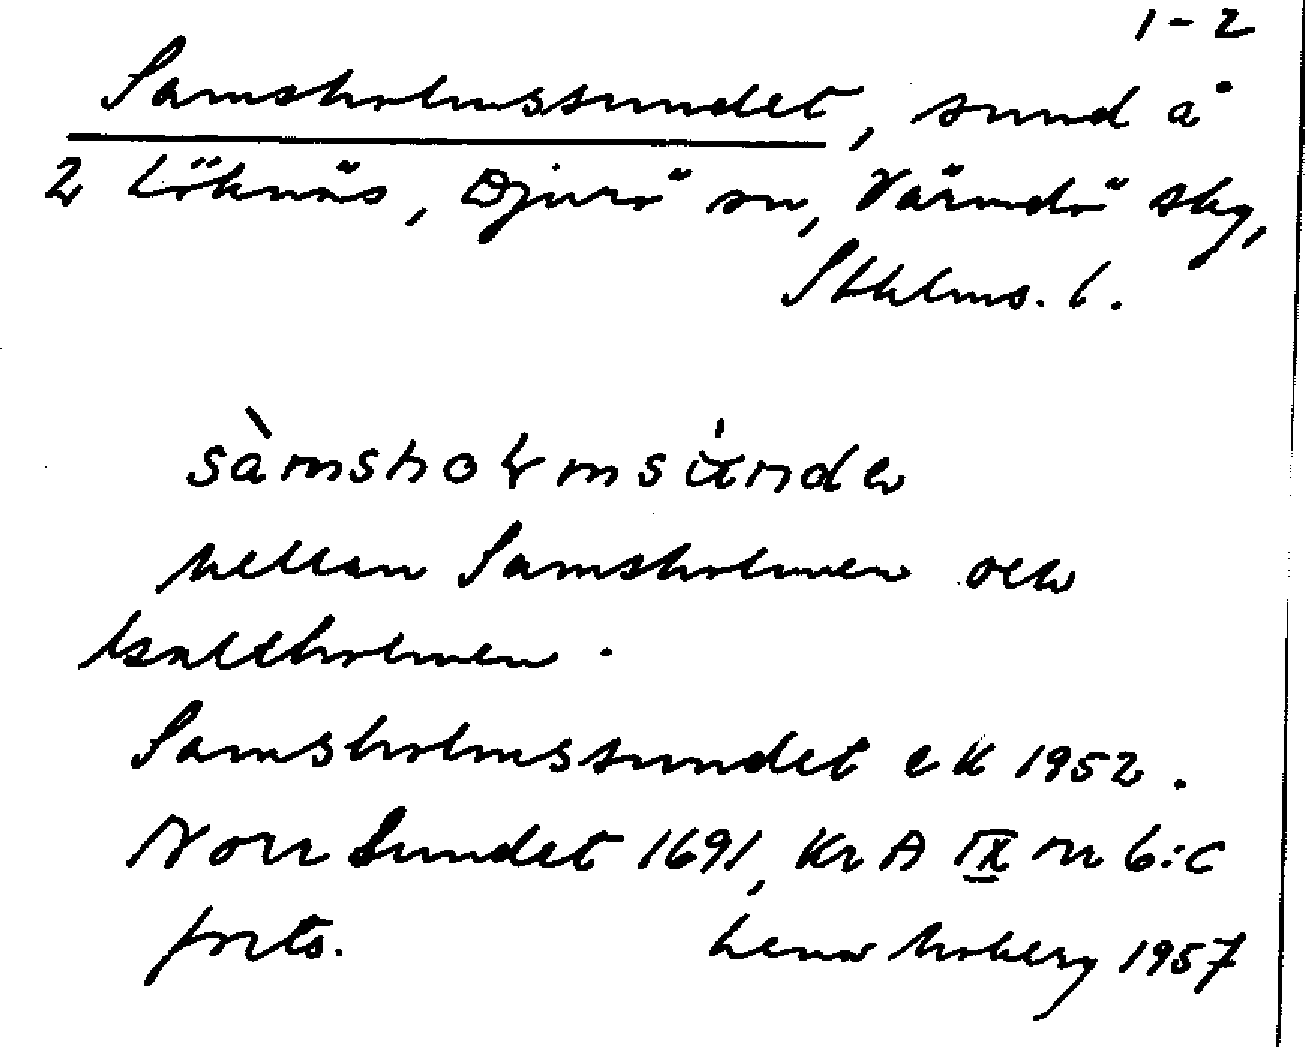 1-2
Samsholmssundet, sund å
2 Löknäs, Djurö sn, Värmdö skg,
Sthlms. l.
sàmshoɫmsúnde
mellan Samsholmen och
Kallholmen.
Samsholmssundet ek 1952.
Norr Sundet 1691, Kr A IX nr 6:c
forts. Lena Moberg 1957